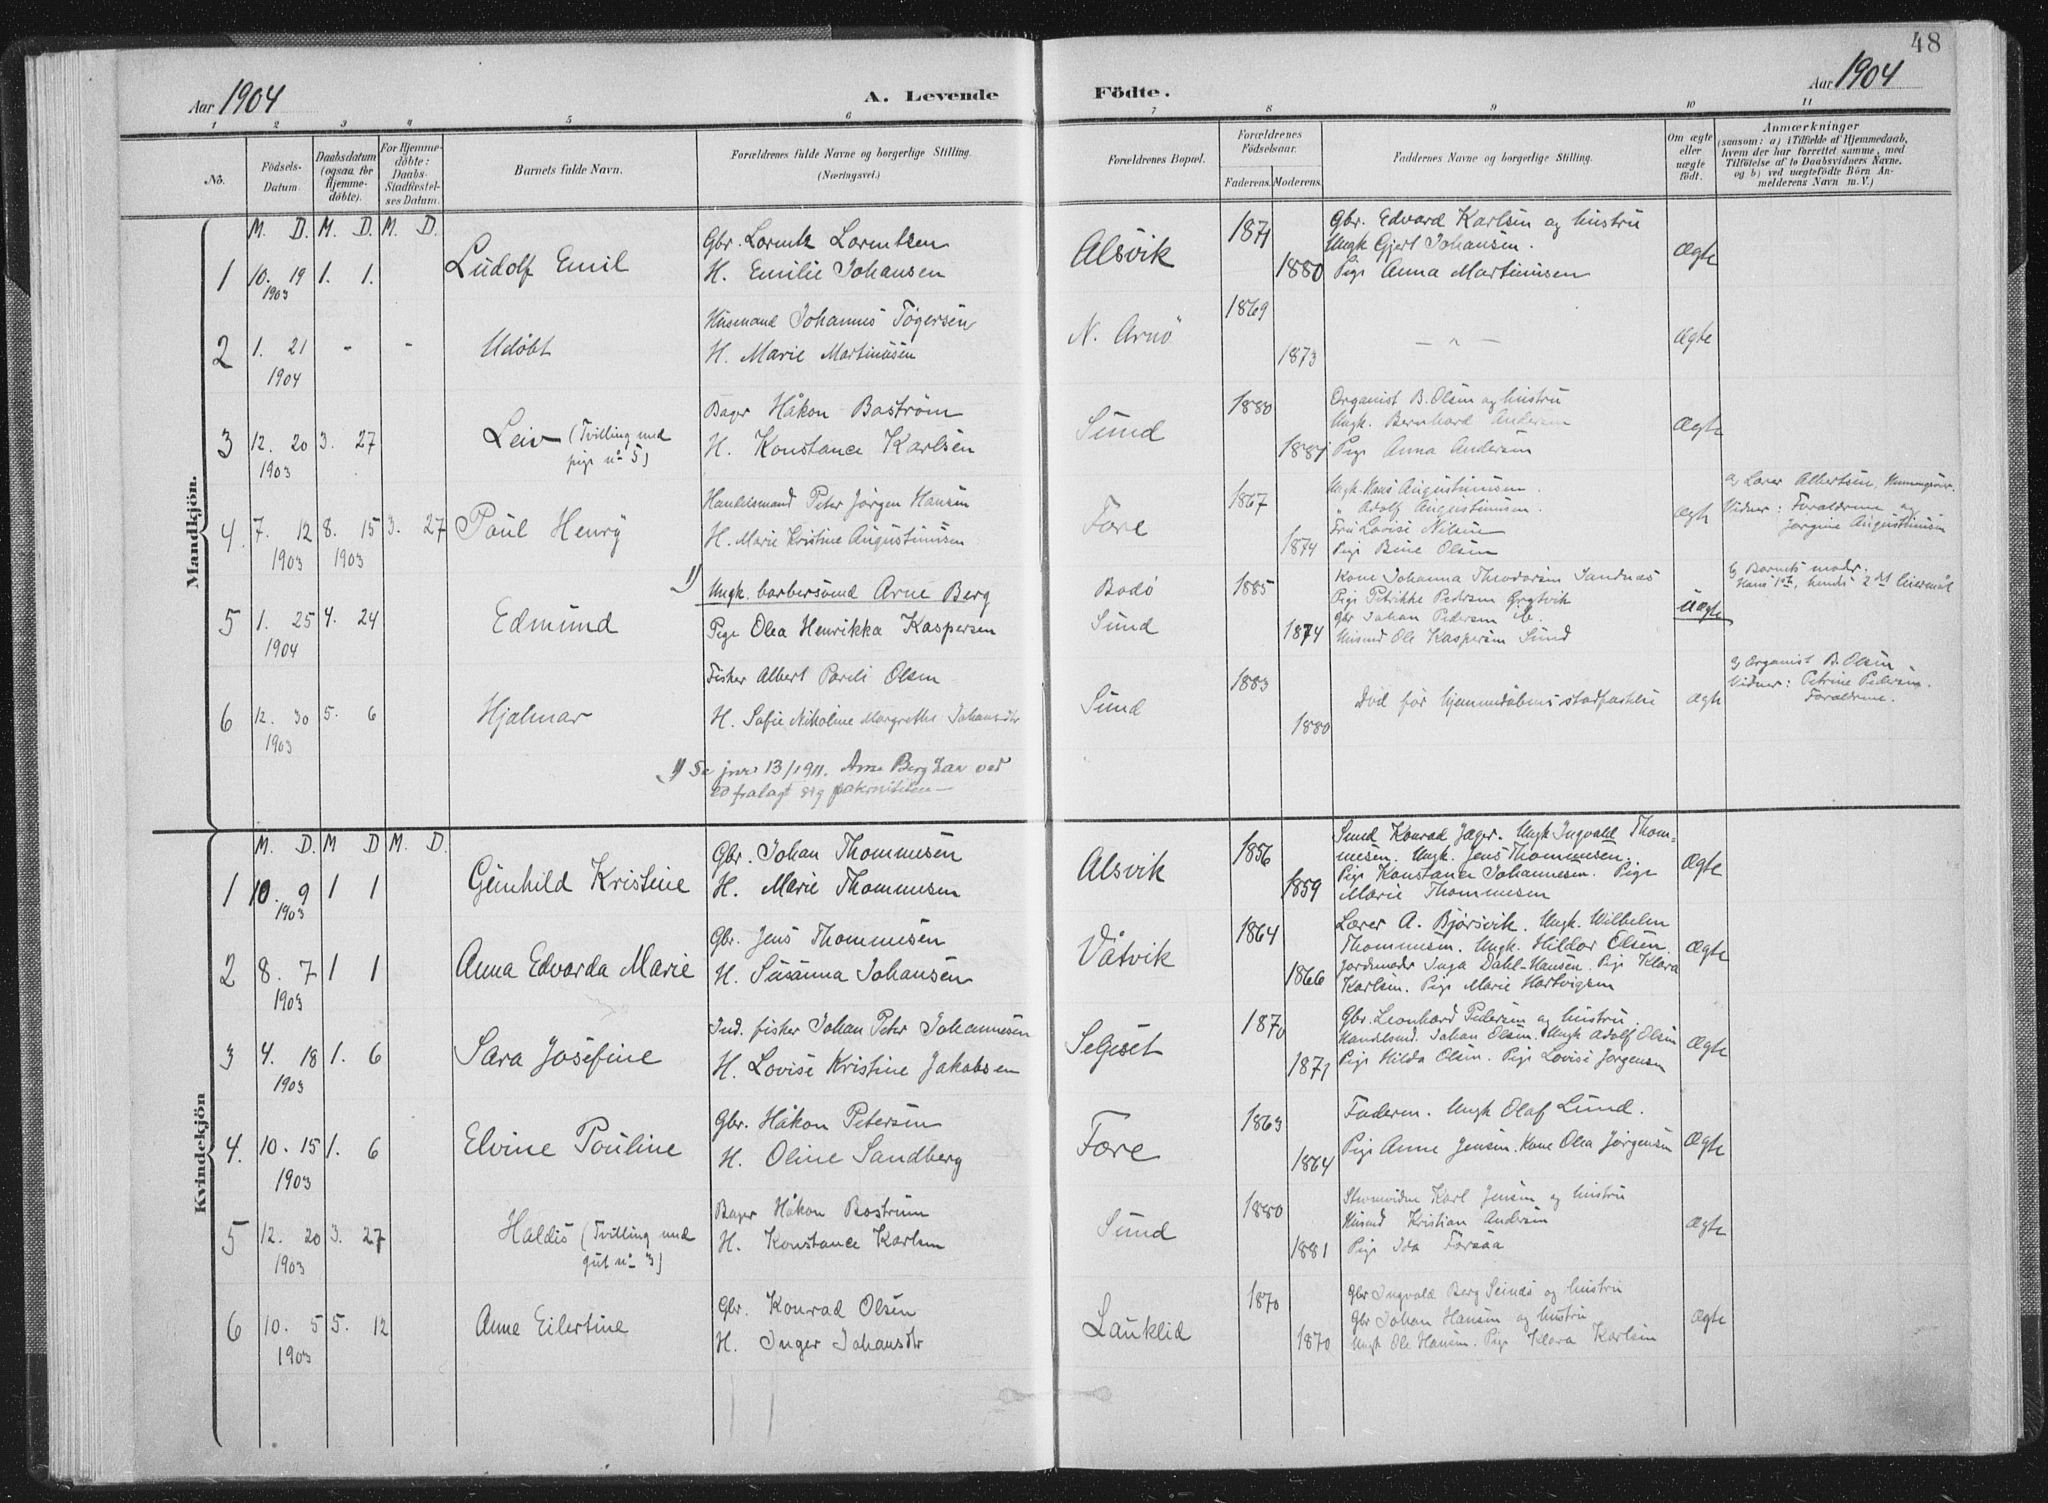 48
Aar 1904
A. Levende
Födte.
Aar 1904
1 2 3 4 5 6 7 8 9 10 11
No.
Födsels-Datum
Daabsdatum (ogsaa for Hjemmedöbte).
For Hjemmedöbte: Daabs-Stadfæstelses Datum.
Barnets fulde Navn.
Forældrenes fulde Navne og borgerlige Stilling. (Næringsvei.)
Forældrenes Bopæl.
Forældrenes Födselsaar.
Faderens. Moderens.
Faddernes Navne og borgerlige Stilling.
Om ægte eller uægte födt.
Anmærkninger
(saasom: a) i Tilfælde af Hjemmedaab,
hvem der har forrettet samme, med
Tilföielse af to Daabsvidners Navne.
og b) ved uægtefödte Börn An-
melderens Navn m. V.)
Mandkjön.
M. D. M. D. M. D.
1 10. 19 1903 1. 1.
Ludolf Emil
Gbr. Lorentz Lorentzen
H. Emilie Johansen
Alsvik
1871
1880
Gbr. Edvard Karlsen og hustru
Ungk. Gjert Johansen.
Pige Anna Martinusen
Ægte
2 1. 21 1904 - -
Udøbt
Husmand Johannes Tøgersen
H. Marie Martinusen
N. Arnö
1869
1873
— „ —
Ægte
3 12. 20 1903 3. 27
Leiv (Tvilling med
pige no 5)
Bager Håkon Boström
H. Konstance Karlsen
Sund
1880
1881
Organist B. Olsen og hustru
Ungk. Bernhard Andersen
Pige Anna Andersen
Ægte
4. 7. 12 1903 8. 15 1903 3. 27
Paul Henry
Handelsmand Peter Jörgen Hansen
H. Marie Kristine Augustinusen
Fore
1867
1874
Ungk. Hans Augustinusen.
" Adolf Augustinusen.
Fru Lovise Nilsen
Pige Bine Olsen
Ægte
a) Lærer Albertsen,
Vidner: Forældrene og
Jørgine Augustinusen
5 1. 25 1904 4. 24
Edmund
1) Ungk. barbersvend Arne Berg
Pige Olea Henrikka Kaspersen
Bodö
Sund
1885
1874
Kone Johanna Theodorsen Sandnæs
Pige Petrikke Pedersen
Gbr Johan Pedersen
Husmd Ole Kaspersen Sund
uægte
b) Barnets moder.
Hans 1st, hendes 2det leiermål
6 12. 30 1903 5. 6
Hjalmar
Fisker Albert Pareli Olsen
H. Sofie Nikoline Margrethe Johansdtr
Sund
1883
1880
Død før hjemmedåbens stadfæstelse
ægte
a) Organist B. Olsen
Vidner: Petrine Pedersen.
Forældrene.
1) Se jnr. 13/1911. Arne Berg har ved
ed fralagt sig paterniteten —
Kvindekjön
M. D. M D M. D.
1 10. 9 1903 1 1
Gunhild Kristine
Gbr. Johan Thommesen
H. Marie Thommesen
Alsvik
1856
1859
Smed Konrad Jæger. Ungk Ingvald Thom-
mesen. Ungk. Jens Thommesen.
Pige Konstance Johannesen. Pige
Marie Thommesen
Ægte
2 8. 7 1903 1 1
Anna Edvarda Marie
Gbr. Jens Thommesen
H. Susanna Johansen
Våtvik
1864
1866
Lærer A. Bjørsvik. Ungk. Wilhelm
Thommesen. Ungk. Hildor Olsen.
Jordemoder Inga Dahl-Hansen. Pige Klara
Karlsen. Pige Marie Hartvigsen
Ægte
3 4. 18 1903 1. 6
Sara Josefine
Ind. fisker Johan Peter Johannesen
H. Lovise Kristine Jakobsen
Selgeset
1870
1871
Gbr. Leonhard Pedersen og hustru
Handlsmd. Johan Olsen. Ungk Adolf Olsen
Pige Hilda Olsen. Pige Lovise Jørgensen
Ægte
4. 10. 15 1903 1. 6
Elvine Pouline
Gbr. Håkon Petersen
H. Oline Sandberg
Fore
1863
1864
Faderen. Ungk Olaf Lund.
Pige Anne Jensen. Kone Olea Jørgensen
Ægte
5 12. 20 1903 3. 27
Haldis (Tvilling med
gut no 3)
Bager Håkon Bostrøm
H. Konstance Karlsen
Sund
1880
1881
Karl Jensen og hustru
Husmd Kristian Andersen
Pige Ida Forsaa
Ægte
6 10. 5 1903 5. 12
Anne Eilertine
Gbr. Konrad Olsen
H. Inger Johansdtr
Lauklid
1870
1870
Gbr Ingvald Berg Seines og hustru
Gbr Johan Hansen og hustru
Ungk Ole Hansen. Pige Klara Karlsen
Ægte